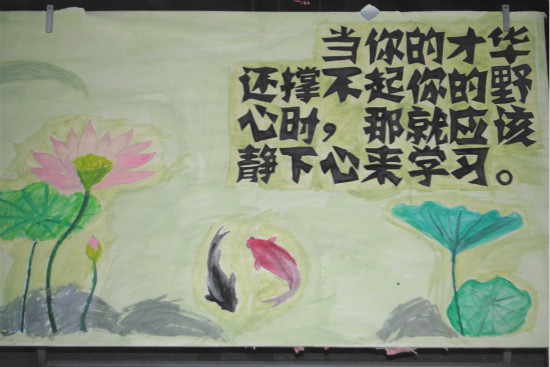 当你的才华
还撑不起你的野
心时，那就应该
静下心来学习。